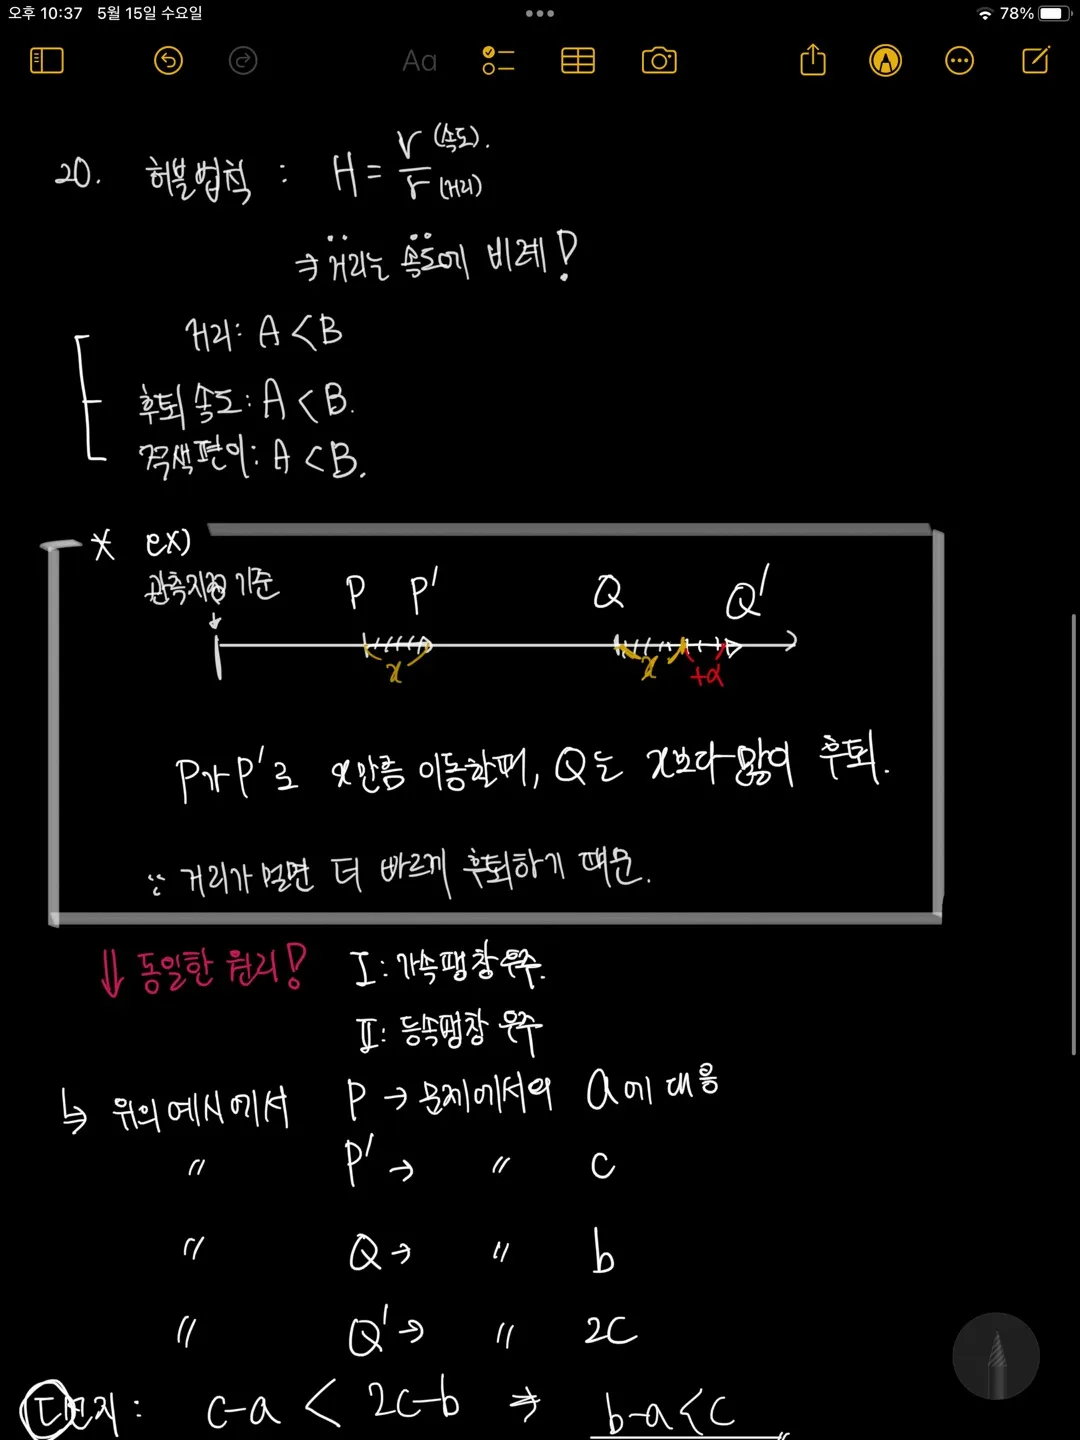 오후 10:37 5월 15일 수요일 78%
Aa
20. 허블법칙 : H = v (속도). / r (거리)
⇒ 거리는 속도에 비례!
거리: A < B
후퇴 속도: A < B.
적색편이: A < B.
* ex)
관측지점 기준 P P' Q Q'
x x +α
P가 P'로 x만큼 이동할때, Q는 x보다 많이 후퇴.
∵ 거리가 멀면 더 빠르게 후퇴하기 때문.
⇓ 동일한 원리! I : 가속팽창우주.
II : 등속팽창 우주
↳ 위의 예시에서 P → 문제에서의 a에 대응
〃 P' → 〃 c
〃 Q → 〃 b
〃 Q' → 〃 2c
ㄷ선지 : c-a < 2c-b ⇒ b-a < c